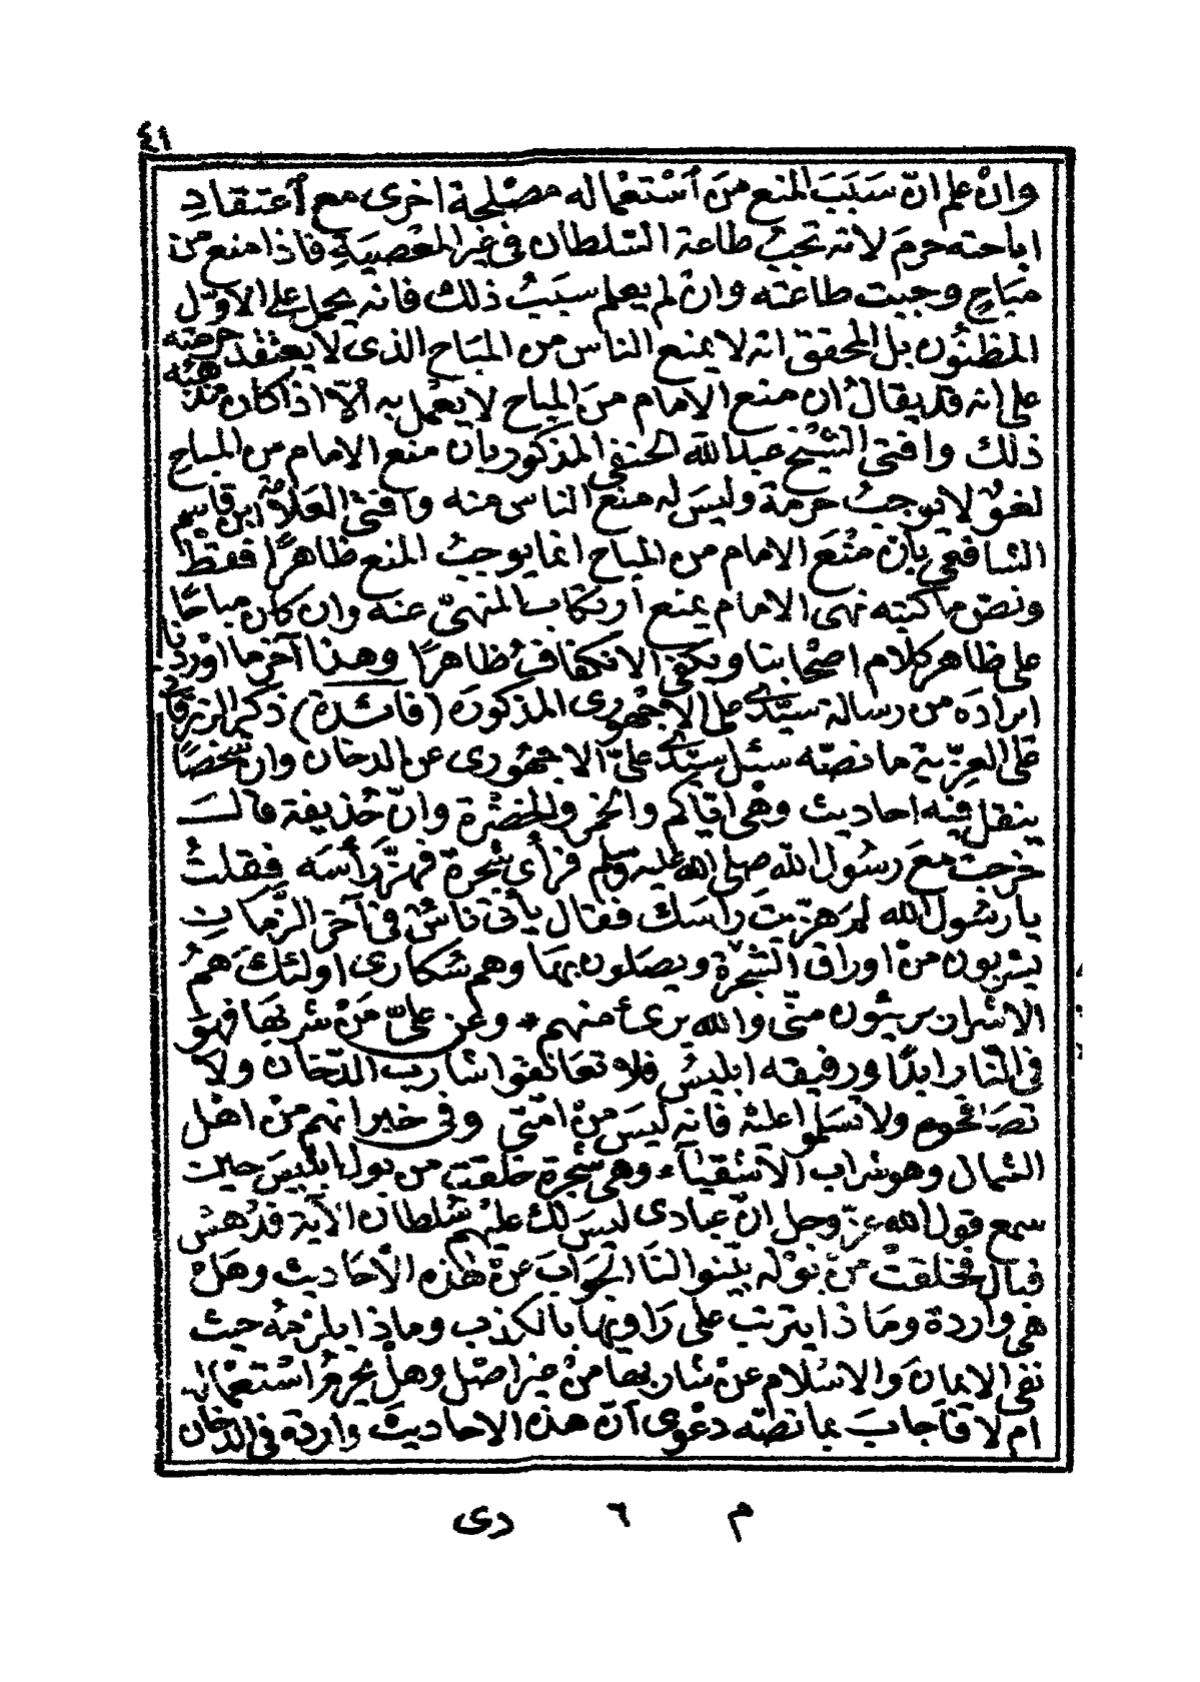 ٤١
وانْ علم انّ سَبَبَ المنع منَ اسْتعماله مصْلحة اخرى مع اعتقادِ
اباحته حرمَ لانه تجبُ طاعة السّلطان فى غير المعْصيَةِ فاذا منع من
مبَاحٍ وجبت طاعته وانْ لم يعلم سبَبُ ذلك فانه يحمل على الاوّل
المظنُون بل المحقق انه لا يمنع الناس من المبَاح الذى لا يعتقد حرمته
على انه قد يقالُ ان منع الامام منَ المباح لا يعْمل به الاّ اذا كان مذهبه
ذلك وافتى الشيْخ عبد الله الحنفى المذكور بان منع الامام من المباح
لغوٌ لا يوجبُ حرمة وليسَ له منع الناس منه وافتى العَلاّمة ابن قاسم
الشافعى بان منْعَ الامام من المباح انما يوجبُ المنع ظاهرًا فقطْ
ونصّ ما كتبه نهى الامام يمنع ارتكاب المنهىّ عنه وان كان مباحًا
على ظاهر كلام اصْحابنا ويكفى الانكفافُ ظاهرًا وهذا آخر ما اوردنا
ايرادَه من رسالة سيّدى على الاجْهورى المذكورَة (فائدة) ذكر الزرقانى
على العِزّية ما نصّه سئل سيّدى علىّ الاجهُورى عن الدخان وان شخصًا
ينقل فيْه احاديث وهْى اياكم والخمر والخضْرة وانّ حُذيفة قالــَ
خرجت معَ رسُول الله صلى الله عليه وسلم فرأى شجرة فهزّ رَأْسَه فقلتُ
يا رسُول الله لم هززتَ رأسَك فقال يأتى ناسٌ فى آخر الزّمانِ
يشربون منْ اوراق الشجرَة ويصَلون بهَا وهم سُكارى اولئكَ همُ
الاشرار بريئُون منّى والله برئ منهم * وعن علىّ مَنْ شربهَا فهوَ
فى النّار ابدًا ورفيقه ابليسُ فلا تعَانقوا شاربَ الدّخان ولا
تصَافحوه ولا تسَلموا عليْه فانه ليسَ منْ امّتى وفى خبر انهم منْ اهْل
الشمال وهو شراب الاشقيَاءِ وهى شجرة خلقت من بول ابليسَ حين
سمع قولَ الله عزّ وجل انّ عبادى ليسَ لك عليْهم سُلطان الآية فدُهشَ
فبال فخلقتْ منْ بوْله بيّنوا لنَا الجوَابَ عنْ هٰذه الاحَاديث وهَلْ
هى واردة ومَا ذا يترتب على رَاويهَا بالكذب وماذا يلزمُه حيث
نفى الايمانَ والاسْلام عنْ شاربهَا منْ غير اصْل وهلْ يحرمُ اسْتعمَاله
ام لا فاجابَ بما نصّه دعْوى انّ هذه الاحاديثَ واردة فى الدخان
م ٦ دى